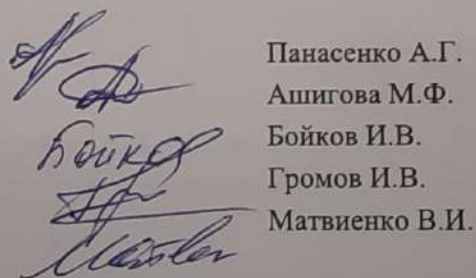 Панасенко А.Г.
Ашигова М.Ф.
Бойков Бойков И.В.
Громов И.В.
Матвиенко В.И.